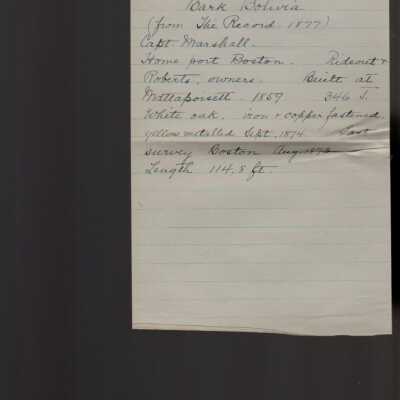 Bark Bolivia
(from The Record 1877)
Capt. Marshall.
Home port Boston. Rideout &
Roberts, owners. Built at
Mattapoisett. 1859 346 T.
White oak, iron & copper fastened,
yellow metalled Sept. 1874. Last
survey Boston Aug. 1873
Length 114.8 ft.